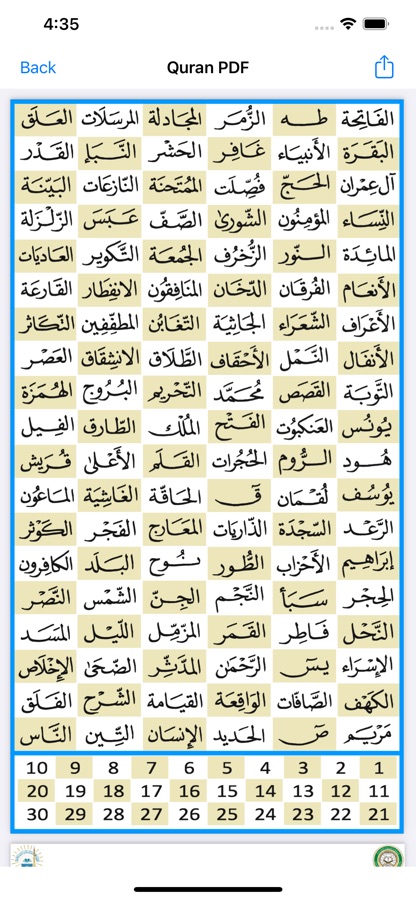 4:35
Back Quran PDF
الفَاتِحَة طـــه الزُّمَر المجَادلة المرسَلَات العَـلَق
البَقَرَة الأنبيَاء غَافِر الحَشْر النَّـبَإِ القَـدْر
آل عِمْرَان الحَــجّ فُصِّلَت المُمْتَحنَة النّازعَات البَيّنَة
النِّسَاء المؤمِنُون الشّورىٰ الصَّـفّ عَـبَسَ الزّلْزَلة
المائِدَة النّـور الزّخْرُف الجُمُعَة التَّكوير العَاديَات
الأنعَام الفُرقَان الدّخَان المنَافِقُون الانِفِطار القَارعَة
الأعْرَاف الشّعَرَاء الجَاثِيَة التّغَابُن المطفِّفِين التّكاثر
الأنفَال النَّـمْل الأحْقاف الطّلَاق الانشِقَاق العَصْر
التَّوبَة القَصَص مُحَـمَّد التّحْريم البُرُوج الهُـمَزَة
يُونُس العَنكبُوت الفَـتْح المُلْك الطّـارق الفِـيل
هُــود الـرُّوم الحُجُرات القَـلَم الأَعْلى قُـرَيش
يُوسُف لُقْـمَان قۤ الحَـاقّة الغَاشِيَة المَاعُون
الرَّعْـد السَّجْدَة الذّاريَات المعَـارِج الفَجْـر الكَوْثر
إبرَاهِيم الأحْزاب الطُّـور نــوح البَـلَد الكافِرون
الحِجْر سَـبَأ النَّجْم الجِـنّ الشّمْس النَّصْر
النَّحْل فَـاطِر القَـمَر المزّمّل اللّيْـل المَسَد
الإسْرَاء يسۤ الرَّحْمٰن المدَّثِّر الضّحَىٰ الإخْلَاص
الكهْف الصَّافات الوَاقِعَة القيَامة الشَّرْح الفَـلَق
مَرْيَـم صۤ الحَـديد الإنسَان التِّـين النَّـاس
10 9 8 7 6 5 4 3 2 1
20 19 18 17 16 15 14 13 12 11
30 29 28 27 26 25 24 23 22 21